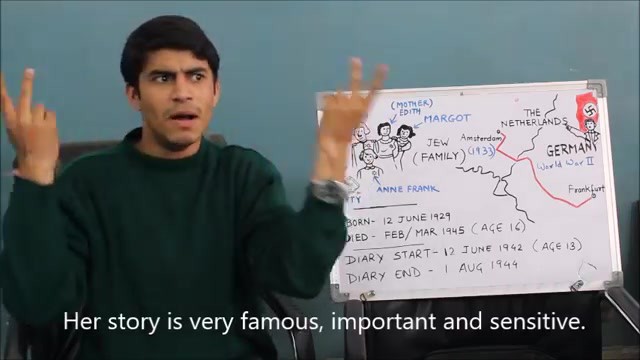 (MOTHER)
EDITH
MARGOT
JEW
(FAMILY)
ANNE FRANK
THE
NETHERLANDS
Amsterdam
(1933)
GERMANY
World War II
Frankfurt
BORN- 12 JUNE 1929
DIED - FEB/MAR 1945 (AGE 16)
DIARY START - 12 JUNE 1942 (AGE 13)
DIARY END - 1 AUG 1944
Her story is very famous, important and sensitive.